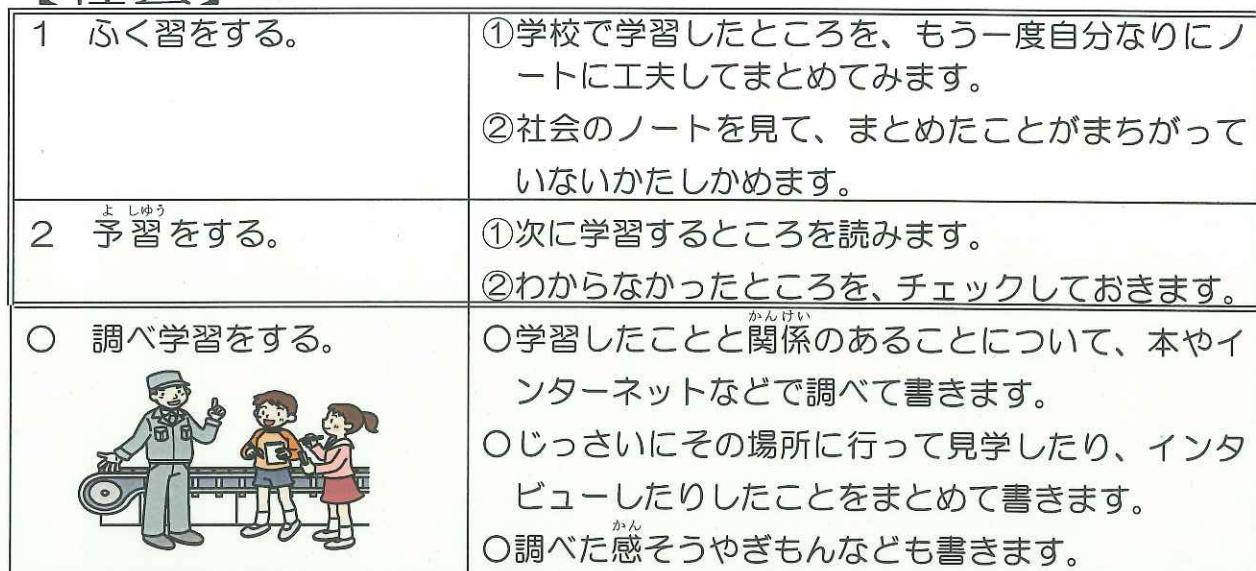 1 ふく習をする。
①学校で学習したところを、もう一度自分なりにノ
ートに工夫してまとめてみます。
②社会のノートを見て、まとめたことがまちがって
いないかたしかめます。
2 予習をする。
よ しゅう
①次に学習するところを読みます。
②わからなかったところを、チェックしておきます。
○ 調べ学習をする。
かんけい
○学習したことと関係のあることについて、本やイ
ンターネットなどで調べて書きます。
○じっさいにその場所に行って見学したり、インタ
ビューしたりしたことをまとめて書きます。
かん
○調べた感そうやぎもんなども書きます。